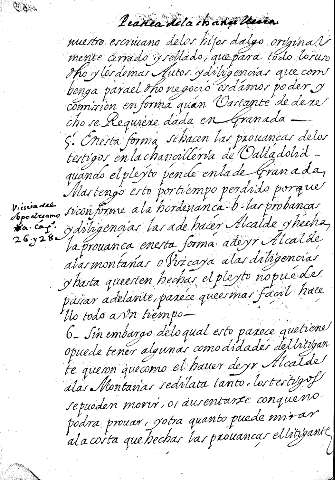 nuestro escrivano delos hijos dalgo originalmente
mente cerrado y sellado, que para todo lo suso
dho y los demas Autos, y diligencias que con
benga para el dho negocio os damos poder y
comision en forma quan vastante de dere
cho se Requiere dada en Granada—
5. En esta forma se hacen las provanças de los
testigos en la chancilleria de Valladolid
quando el pleyto pende en la de Granada
Mas tengo esto por tiempo perdido porque
si conforme a la hordenança -6- las probanças
y diligencias las a de hacer Alcalde y hecha
la provanca en esta forma a de yr Alcalde
a las montañas o Vizcaya a las diligencias
y hasta que esten hechas el pleyto no puede
pasar adelante, parece que es mas facil hace
llo todo a Un tiempo—
6- Sin embargo de lo qual esto parece que tiene
o puede tener algunas comodidades del litigan
te que son que como el haver de yr Alcalde
a las Montañas se dilata tanto, los testigos
se pueden morir, o ausentarse con que no
podra provar, y otra quanto puede mirar
a la costa que hechas las provanças el litigante
26 y 28